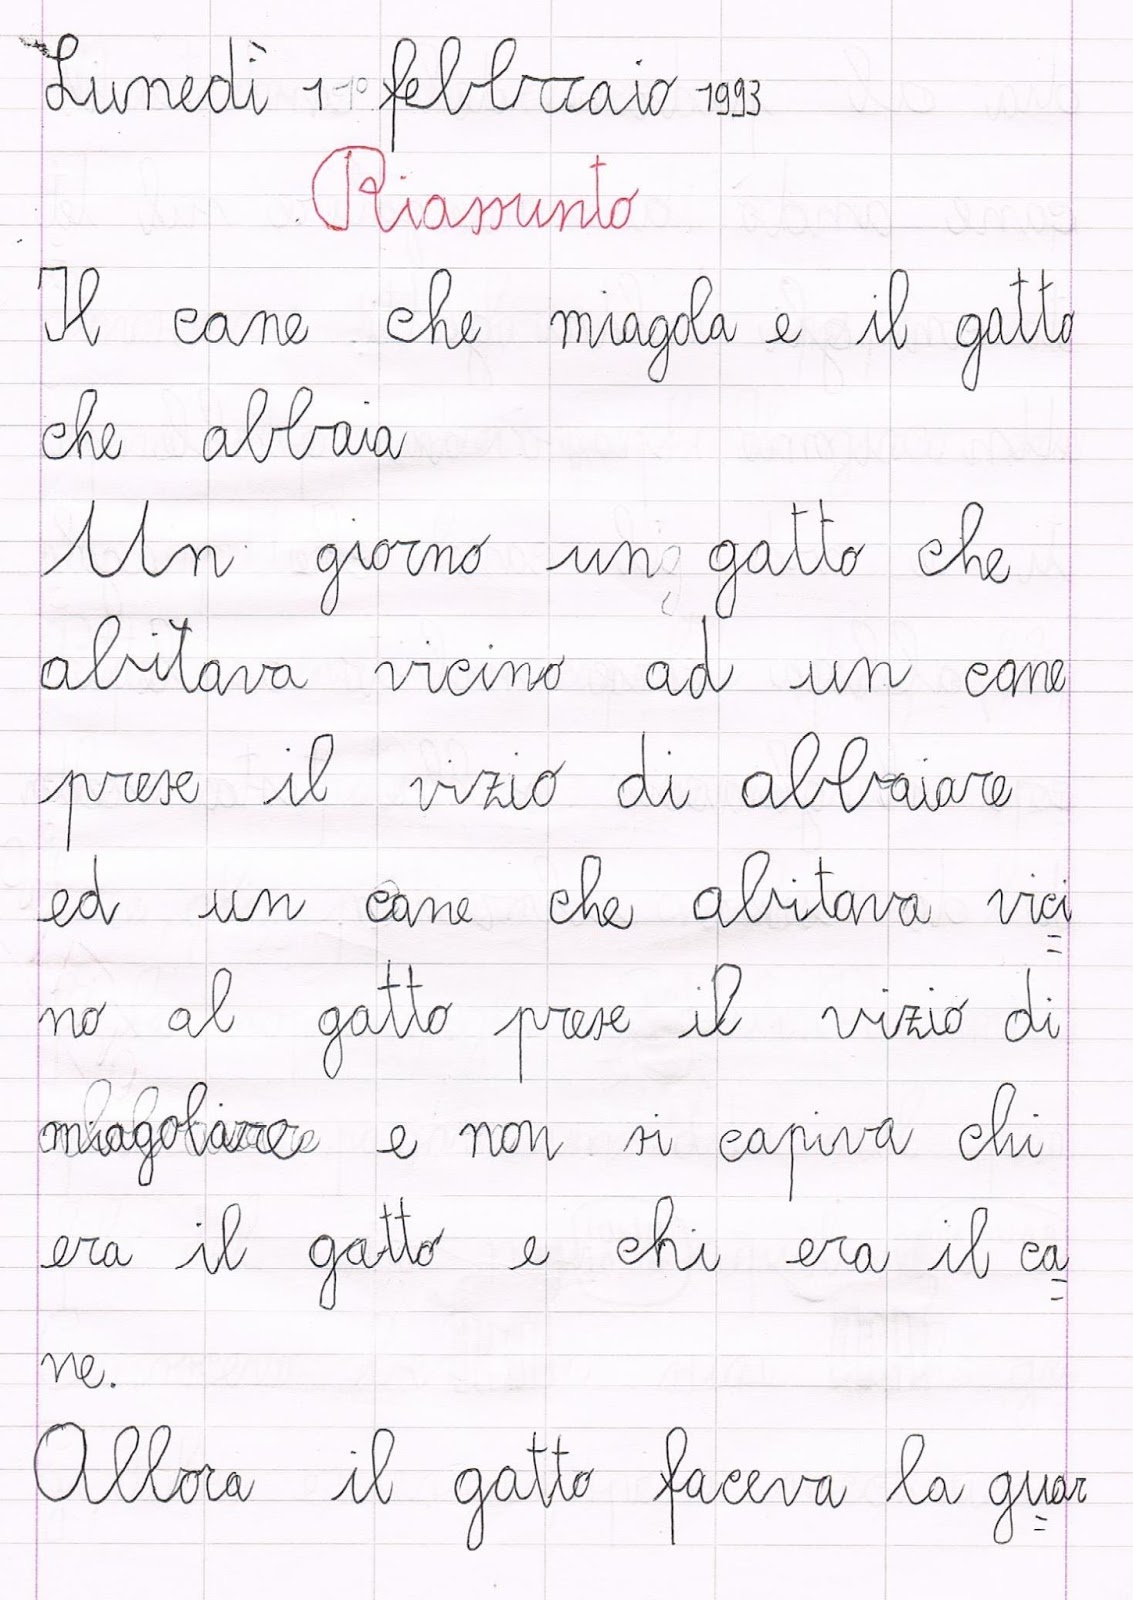 Lunedì 1 1° febbraio 1993
Riassunto
Il cane che miagola e il gatto
che abbaia
Un giorno un gatto che
abitava vicino ad un cane
prese il vizio di abbaiare
ed un cane che abitava vici=
no al gatto prese il vizio di
miagolare e non si capiva chi
era il gatto e chi era il ca=
ne.
Allora il gatto faceva la guar=